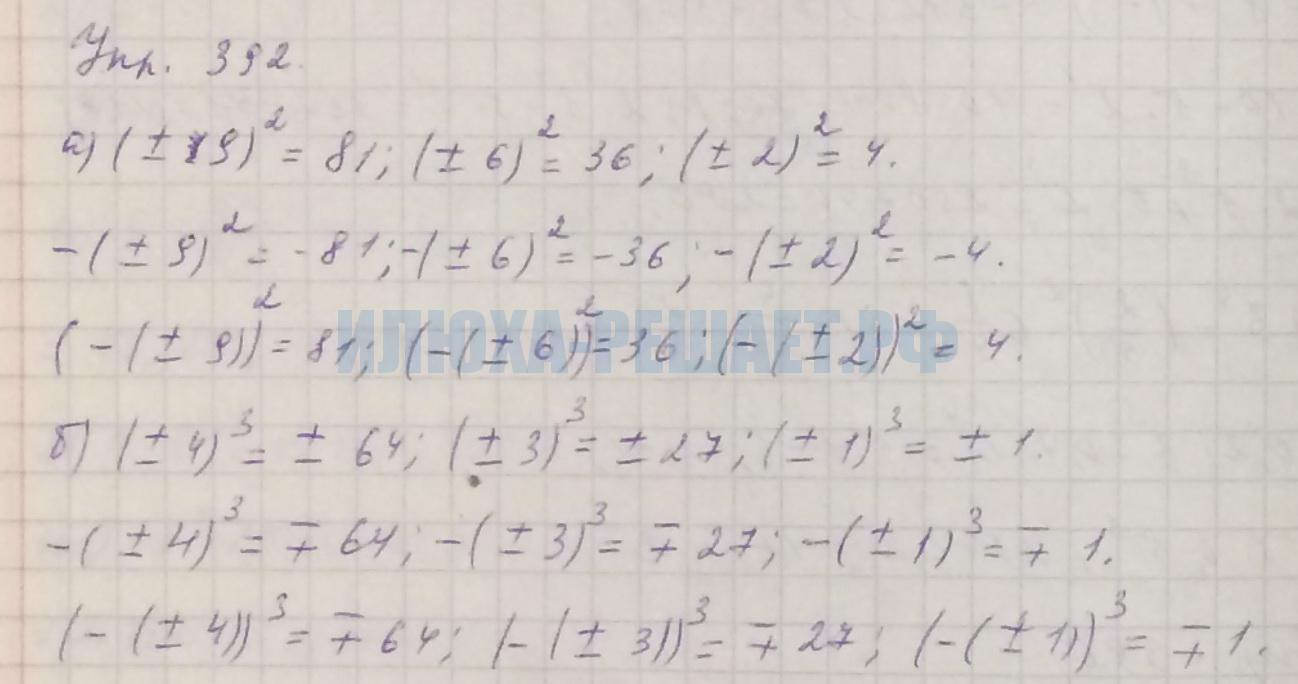 Упр. 392.
а) (± 9)² = 81; (± 6)² = 36; (± 2)² = 4.
-(± 9)² = -81; -(± 6)² = -36; -(± 2)² = -4.
(-(± 9))² = 81; (-(± 6))² = 36; (-(± 2))² = 4.
ИЛЮХА РЕШАЕТ.РФ
б) (± 4)³ = ± 64; (± 3)³ = ± 27; (± 1)³ = ± 1.
-(± 4)³ = ∓ 64; -(± 3)³ = ∓ 27; -(± 1)³ = ∓ 1.
(-(± 4))³ = ∓ 64; (-(± 3))³ = ∓ 27; (-(± 1))³ = ∓ 1.